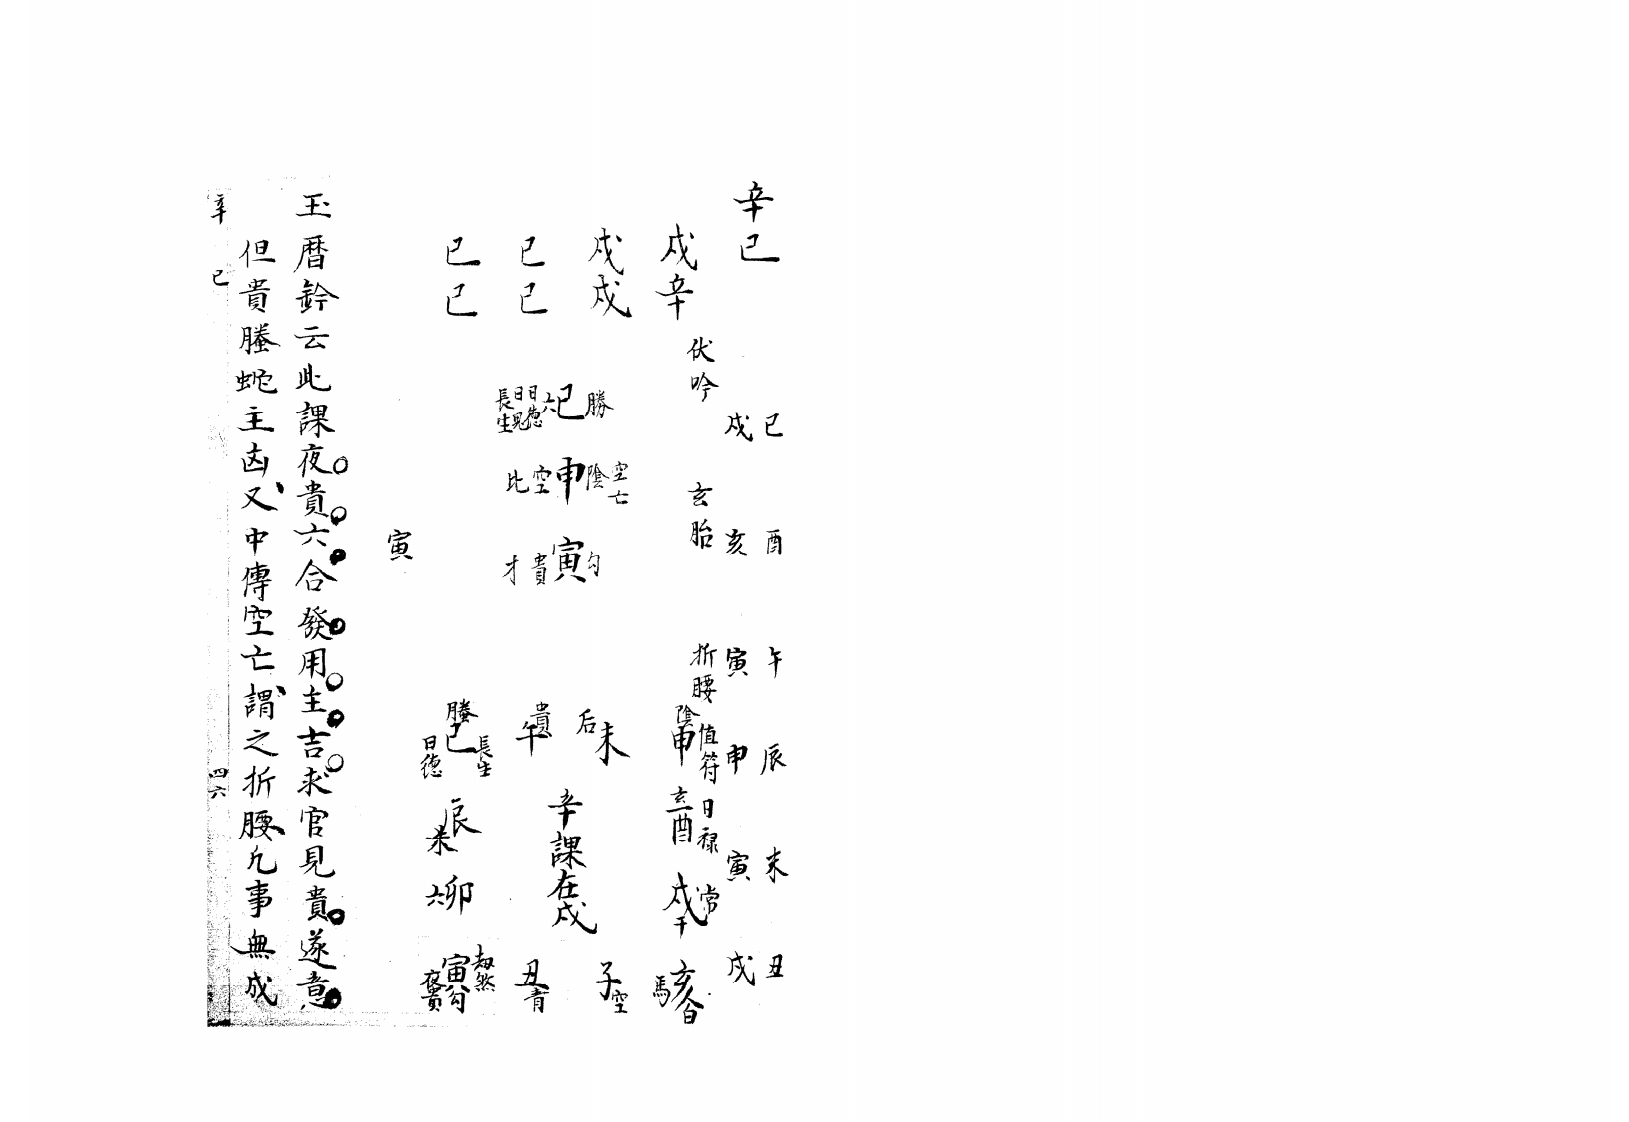 辛巳
巳 酉 午 辰 未 丑
戌 亥 寅 申 寅 戌
戌辛
戌戌
巳巳
巳巳
伏吟
玄胎
折腰
螣巳六日德日鬼長生
空亡陰申空比
勾寅貴才
寅
陰申值符
玄酉日禄
戌干常
亥白馬
后未
貴午
螣巳長生日德
辰朱
六卯
寅勾劫煞夜貴
丑青
子空
辛課在戌
玉暦鈐云此課夜貴六合發用主吉求官見貴遂意
但貴螣蛇主凶又中傳空亡謂之折腰凡事無成
辛巳
四六